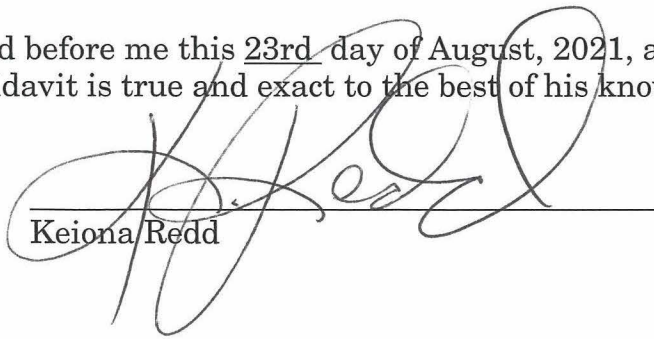 d before me this 23rd day of August, 2021, a
davit is true and exact to the best of his kno
K. Redd
Keiona Redd